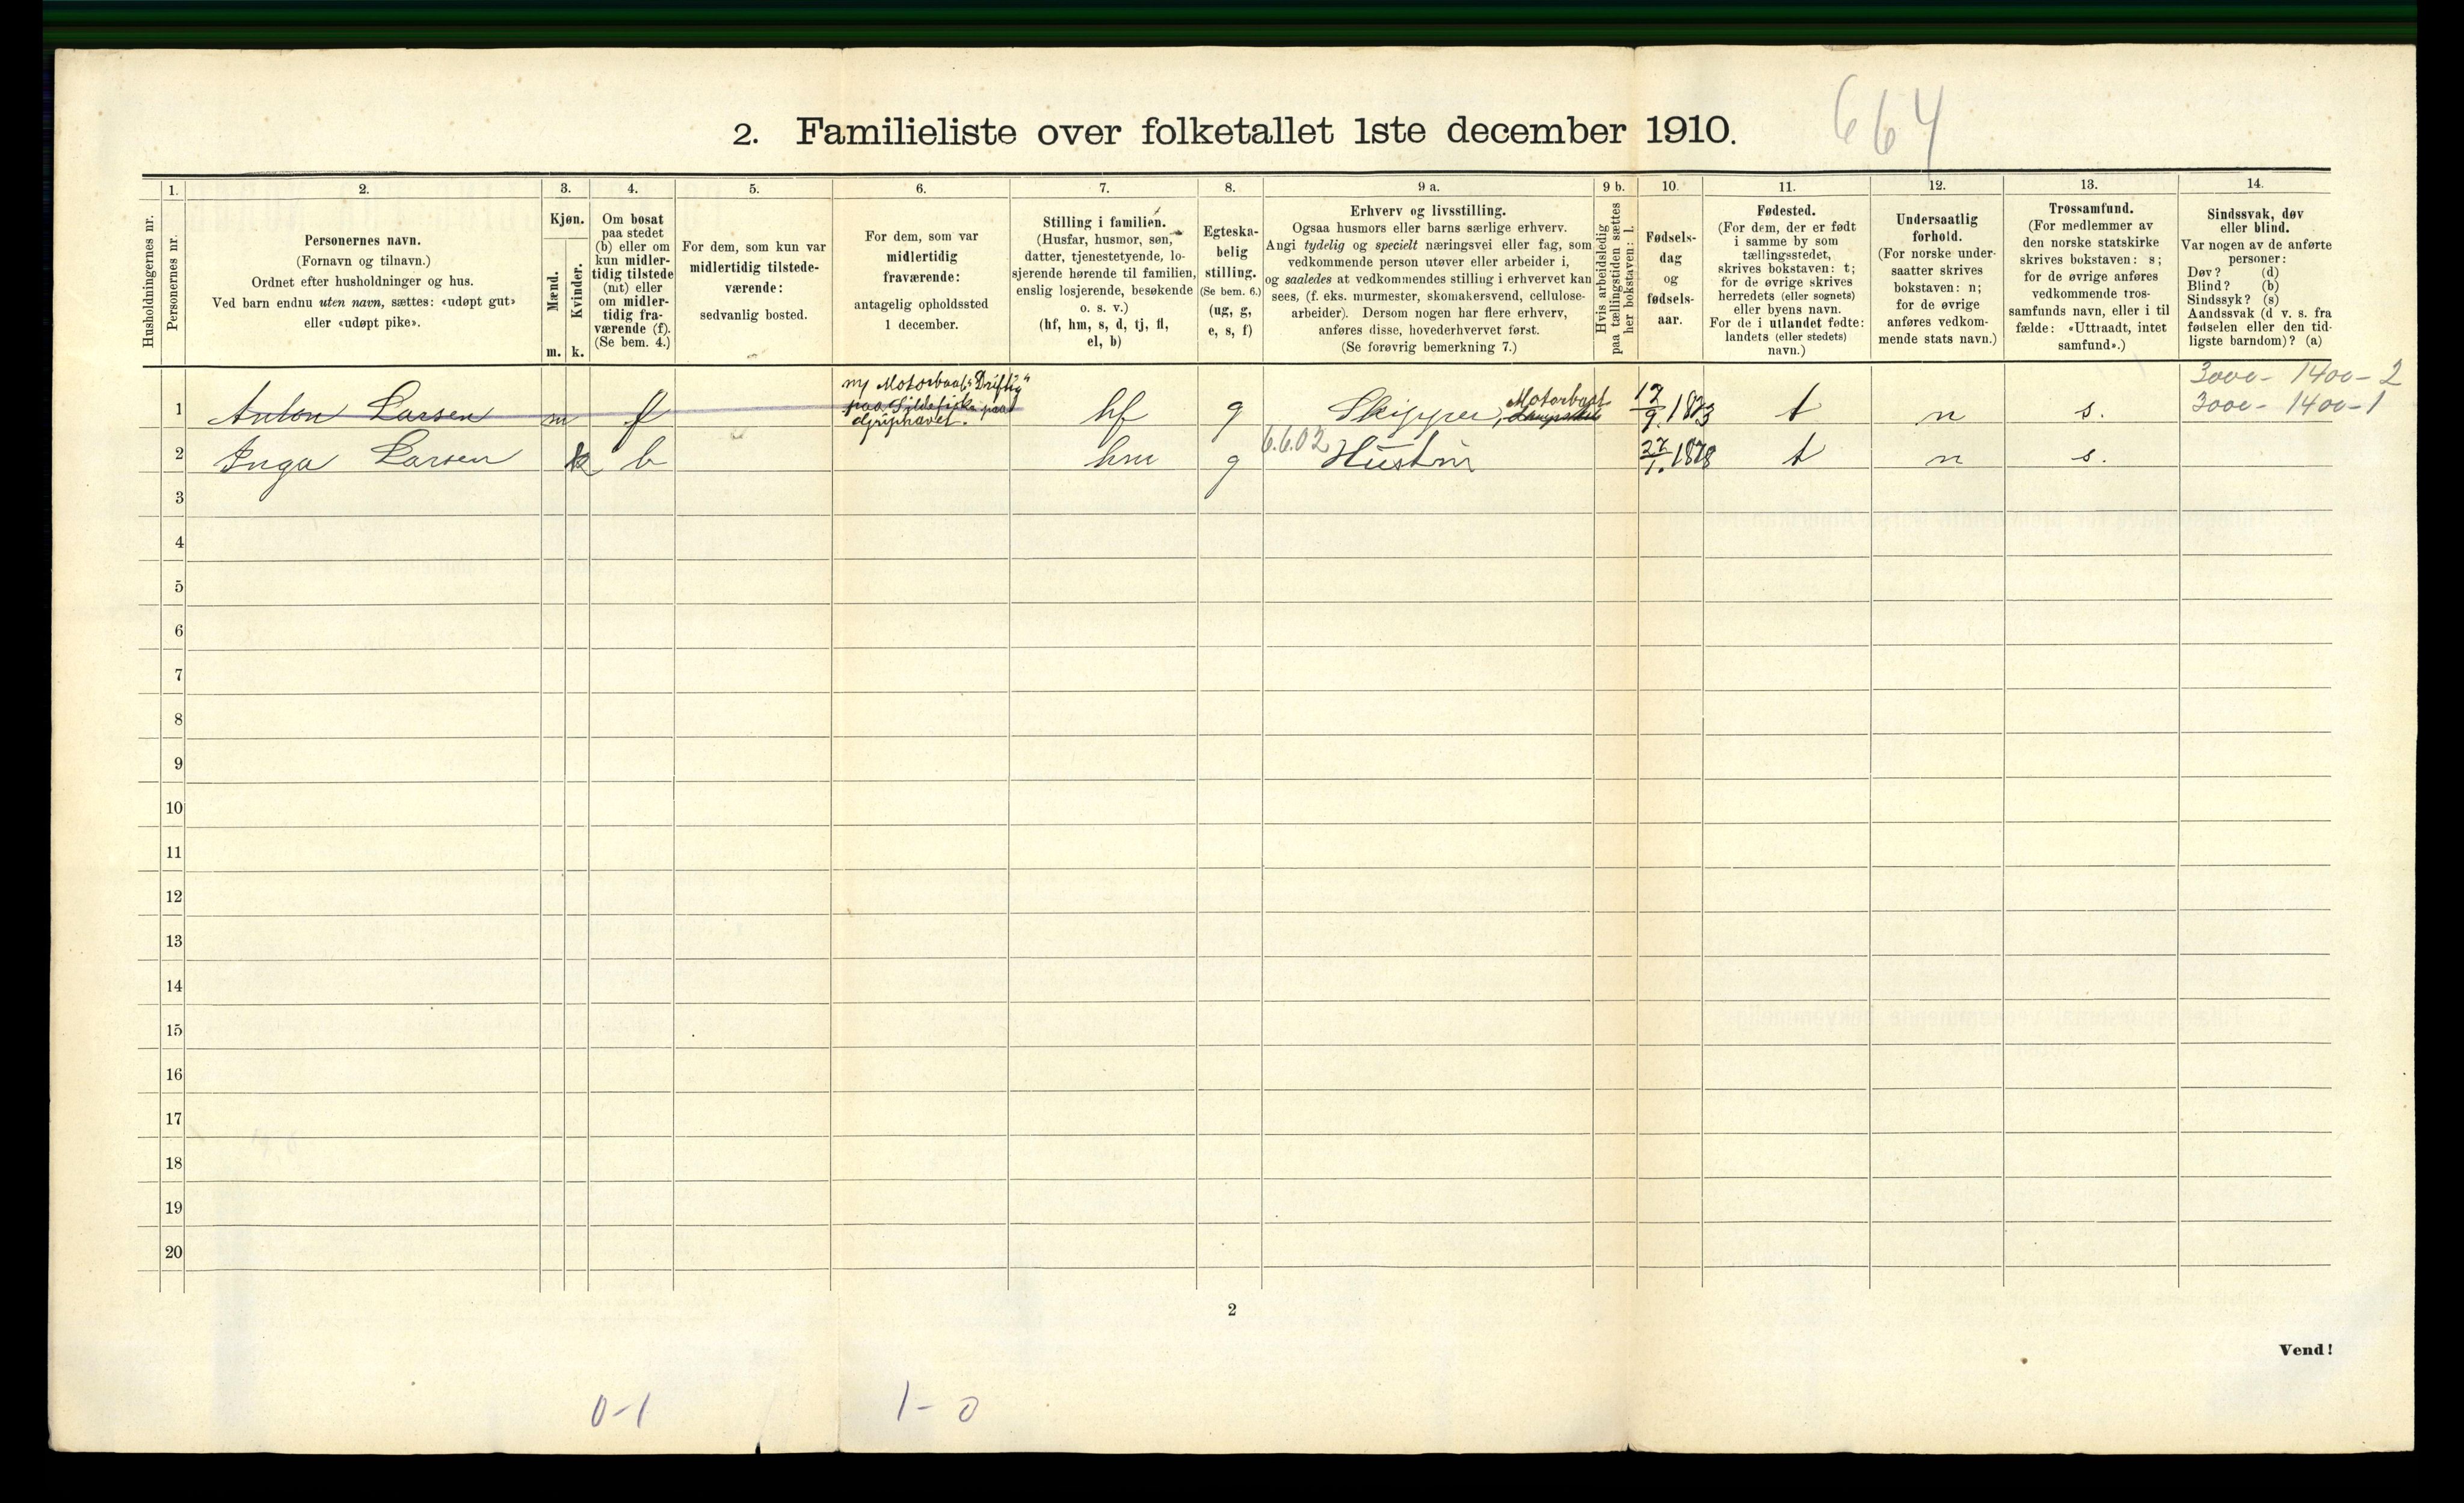 2. Familieliste over folketallet 1ste december 1910.
664
Husholdningernes nr.
1.
Personernes nr.
2.
Personernes navn.
(Fornavn og tilnavn.)
Ordnet efter husholdninger og hus.
Ved barn endnu uten navn, sættes: «udøpt gut»
eller «udøpt pike».
3.
Kjøn.
Mænd.
Kvinder.
m. k.
4.
Om bosat
paa stedet
(b) eller om
kun midler-
tidig tilstede
(mt) eller
om midler-
tidig fra-
værende (f).
(Se bem. 4.)
5.
For dem, som kun var
midlertidig tilstede-
værende:
sedvanlig bosted.
6.
For dem, som var
midlertidig
fraværende:
antagelig opholdssted
1 december.
7.
Stilling i familien.
(Husfar, husmor, søn,
datter, tjenestetyende, lo-
sjerende hørende til familien,
enslig losjerende, besøkende
o. s. v.)
(hf, hm, s, d, tj, fl,
el, b)
8.
Egteska-
belig
stilling.
(Se bem. 6.)
(ug, g,
e, s, f)
9 a.
Erhverv og livsstilling.
Ogsaa husmors eller barns særlige erhverv.
Angi tydelig og specielt næringsvei eller fag, som
vedkommende person utøver eller arbeider i,
og saaledes at vedkommendes stilling i erhvervet kan
sees, (f. eks. murmester, skomakersvend, cellulose-
arbeider). Dersom nogen har flere erhverv,
anføres disse, hovederhvervet først.
(Se forøvrig bemerkning 7.)
9 b.
Hvis arbeidsledig
paa tællingstiden sættes
her bokstaven: l.
10.
Fødsels-
dag
og
fødsels-
aar.
11.
Fødested.
(For dem, der er født
i samme by som
tællingsstedet,
skrives bokstaven: t;
for de øvrige skrives
herredets (eller sognets)
eller byens navn.
For de i utlandet fødte:
landets (eller stedets)
navn.)
12.
Undersaatlig
forhold.
(For norske under-
saatter skrives
bokstaven: n;
for de øvrige
anføres vedkom-
mende stats navn.)
13.
Trossamfund.
(For medlemmer av
den norske statskirke
skrives bokstaven: s;
for de øvrige anføres
vedkommende tros-
samfunds navn, eller i til
fælde: «Uttraadt, intet
samfund».)
14.
Sindssvak, døv
eller blind.
Var nogen av de anførte
personer:
Døv? (d)
Blind? (b)
Sindssyk? (s)
Aandssvak (d v. s. fra
fødselen eller den tid-
ligste barndom)? (a)
3000- 1400- 2
3000- 1400- 1
1 Anton Larsen m f
m/ Motorbaat "Driftig"
paa Sildefiske paa
hf g Skipper, Motorbaat 17/9. 1873 t n s.
6.6.02
2 Inga Larsen k b hm g Hustru 27/1. 1878 t n s.
3
4
5
6
7
8
9
10
11
12
13
14
15
16
17
18
19
20
2
Vend!
0-1
1-0